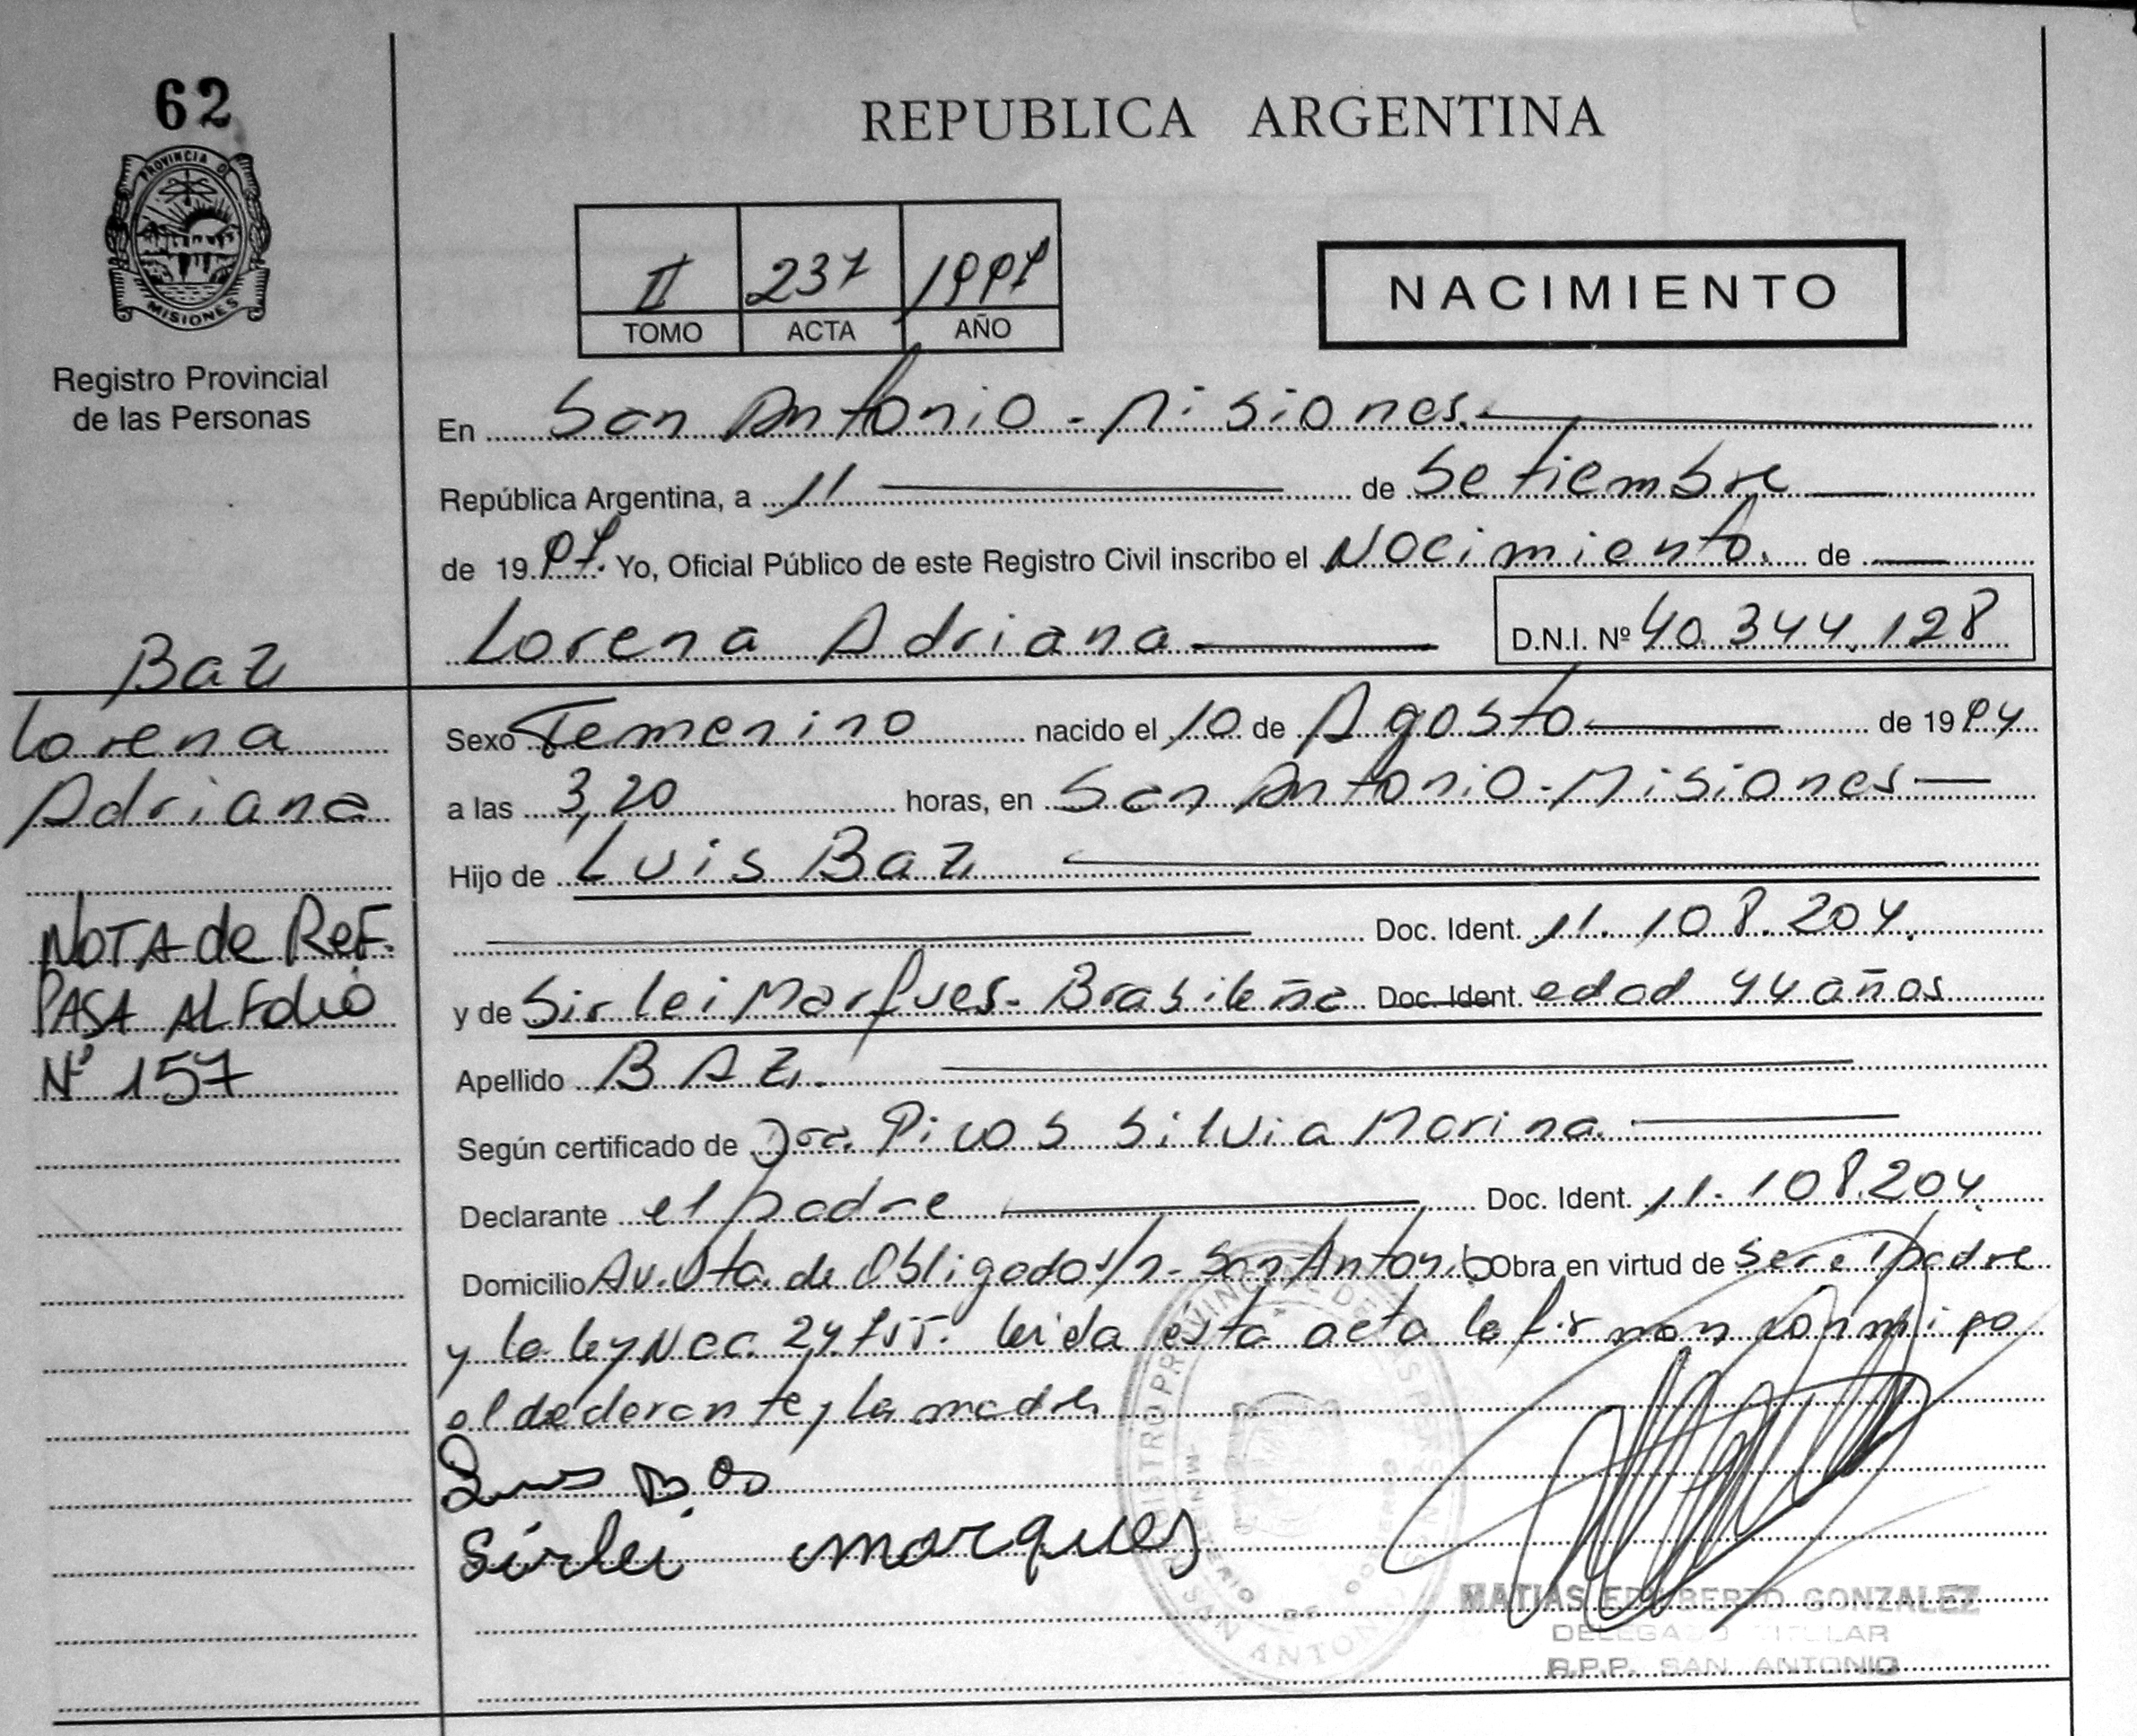 62
PROVINCIA DE
MISIONES
Registro Provincial
de las Personas
REPUBLICA ARGENTINA
II 237 1997
TOMO ACTA AÑO
NACIMIENTO
En San Antonio - Misiones.
República Argentina, a 11 de Setiembre
de 1997. Yo, Oficial Público de este Registro Civil inscribo el Nacimiento. de
Lorena Adriana D.N.I. Nº 40.344.128
Baz
Lorena
Adriana
NOTA de REF.
PASA AL FOLIO
Nº 157
Sexo Femenino nacido el 10 de Agosto de 1994
a las 3,20 horas, en San Antonio - Misiones
Hijo de Luis Baz
Doc. Ident. 11.108.204.
y de Sirlei Marques - Brasileña Doc. Ident. edad 44 años
Apellido BAZ.
Según certificado de Dra. Picos Silvia Marina.
Declarante el padre Doc. Ident. 11.108.204.
Domicilio Av. Vta. de Obligado s/n - San Antonio Obra en virtud de ser el padre
y la ley Nac. 24.755. leida esta acta la firman conmigo
el declarante y la madre
Luis
Sirlei marques
REGISTRO PROVINCIAL DE LAS PERSONAS
MINISTERIO DE GOBIERNO
SAN ANTONIO
MATIAS EDILBERTO GONZALEZ
DELEGADO TITULAR
R.P.P. SAN ANTONIO